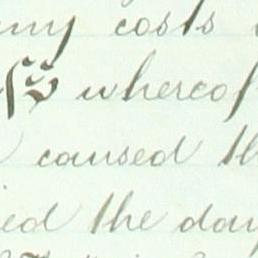 my costs
whereof
caused th
ied the day